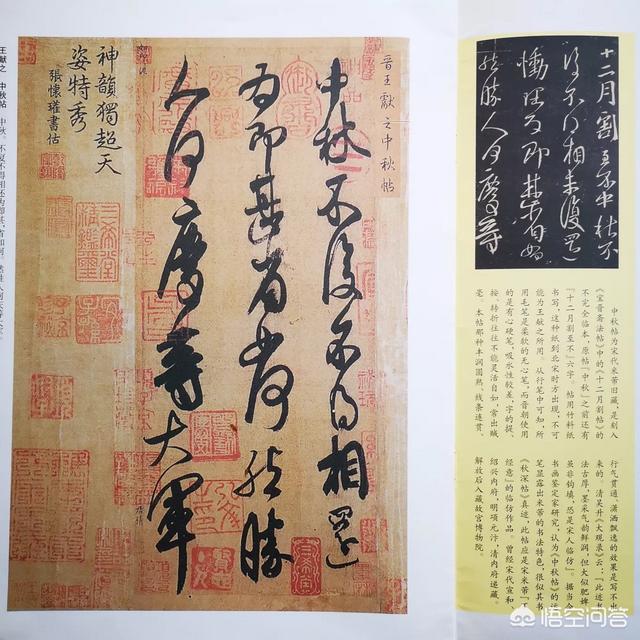 晉王獻之中秋帖
中秋不復不得相還
為即甚省如何然勝
人何慶等大軍
神韻獨超天
姿特秀
張懷瓘書估
三希堂
精鑑璽
王献之 中秋帖
十二月割至不中秋不
復不得相未復還
慟理為即甚省如
何然勝人何慶等
中秋帖为宋代米芾旧藏，是刻入
《宝晋斋法帖》中的《十二月割帖》的
不完全临本，原帖「中秋」之前还有
「十二月割至不」六字。帖用竹料纸
书写，这种纸到北宋时方出现，不可
能为王献之所用。从行笔中可知，所
用毛笔是柔软的无心笔，而晋朝使用
的是有心硬笔，吸水性较差，字的提、
按、转折往往不能灵活自如，常出贼
毫。本帖那种丰润圆熟、线条连贯、
行气贯通、潇洒飘逸的效果是写不出
来的。清吴升《大观录》云：「此迹书
法古厚，墨采气韵鲜润，但大似肥婢，
虽非钩填，恐是宋人临仿」。据当今
书画鉴定家研究，认为《中秋帖》的运
笔显露出米芾的书法特色，很似其书
《秋深帖》真迹，此帖应是宋米芾「
经意」的临仿作品。曾经宋代宣和
绍兴内府，明项元汴，清内府递藏。
解放后入藏故宫博物院。
悟空问答